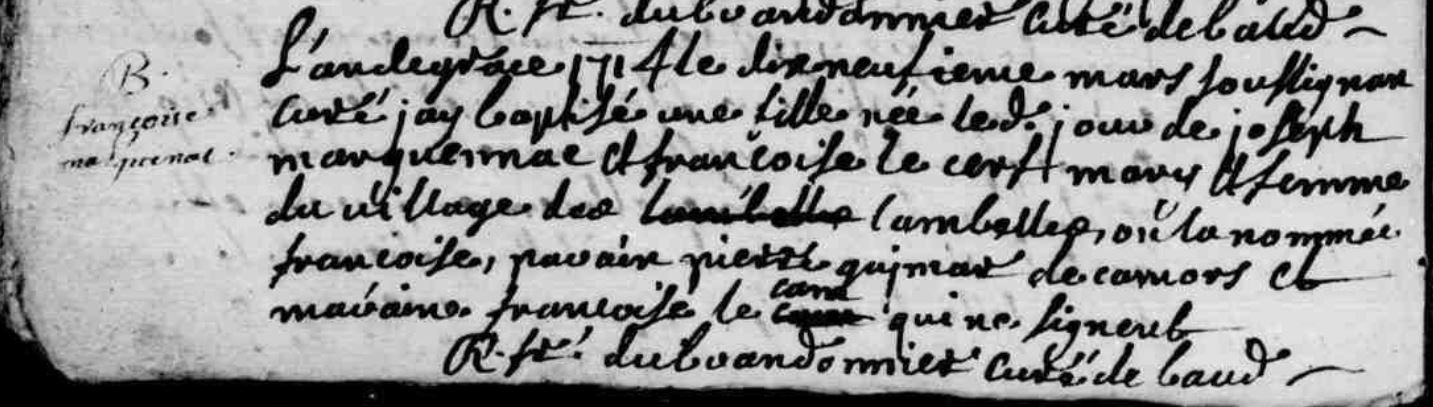 R. fr. duboandonnier curé de baud
B.
françoise
marquenac
L'an de grace 1714 le dix neufieme mars soussignant
curé jay baptisé une fille née led. jour de joseph
marquennac et françoise le cerf mary et femme
du village des lambelles, on la nommée
francoise, parain pierre guimar de camors et
maraine francoise le cam qui ne signent
R. fr. duboandonnier curé de baud